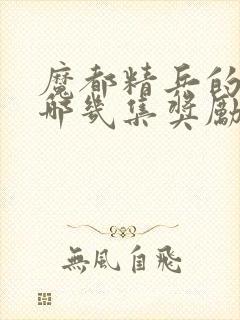 魔都精兵的
哪幾集獎勵
無風自飛